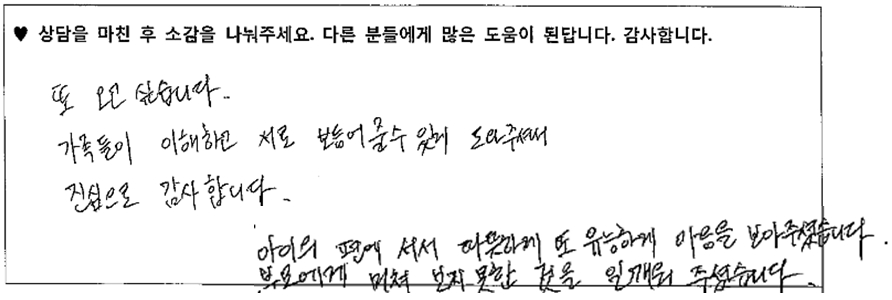 ♥ 상담을 마친 후 소감을 나눠주세요. 다른 분들에게 많은 도움이 된답니다. 감사합니다.
또 오고 싶습니다.
가족들이 이해하고 서로 보듬어줄수 있게 도와주셔서
진심으로 감사합니다.
아이의 편에 서서 따뜻하게 또 유능하게 마음을 보아주셨습니다.
부모에게 미쳐 보지 못한 것을 일깨워 주셨습니다.